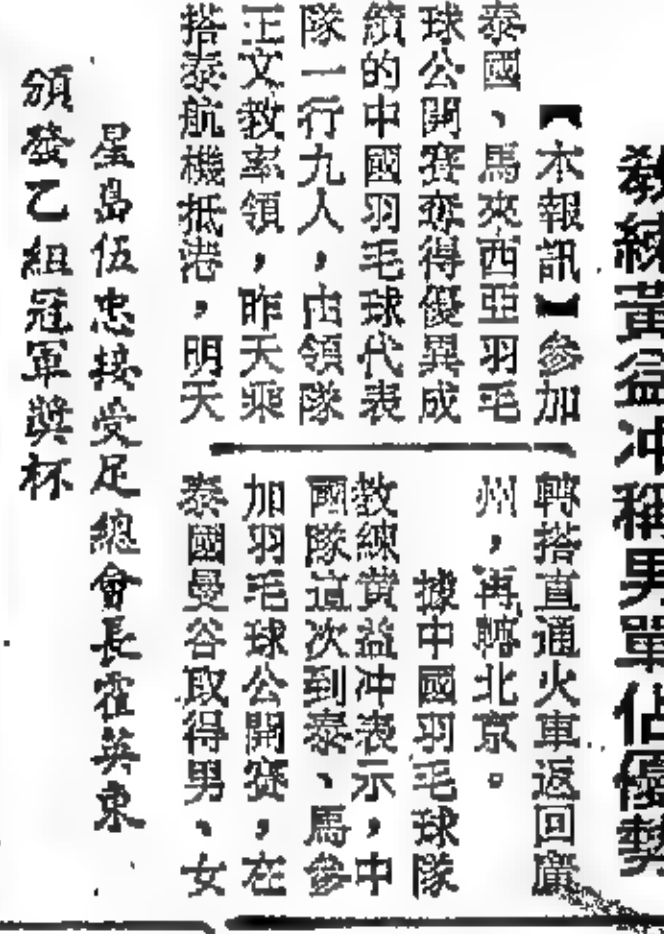 教練黃益冲稱男單佔優勢
【本報訊】參加
泰國、馬來西亞羽毛
球公開賽奪得優異成
績的中國羽毛球代表
隊一行九人，由領隊
王文教率領，昨天乘
搭泰航機抵港，明天
轉搭直通火車返回廣
州，再轉北京。
據中國羽毛球隊
教練黃益冲表示，中
國隊這次到泰、馬參
加羽毛球公開賽，在
泰國曼谷取得男、女
星島伍忠接受足總會長霍英東
頒發乙組冠軍獎杯